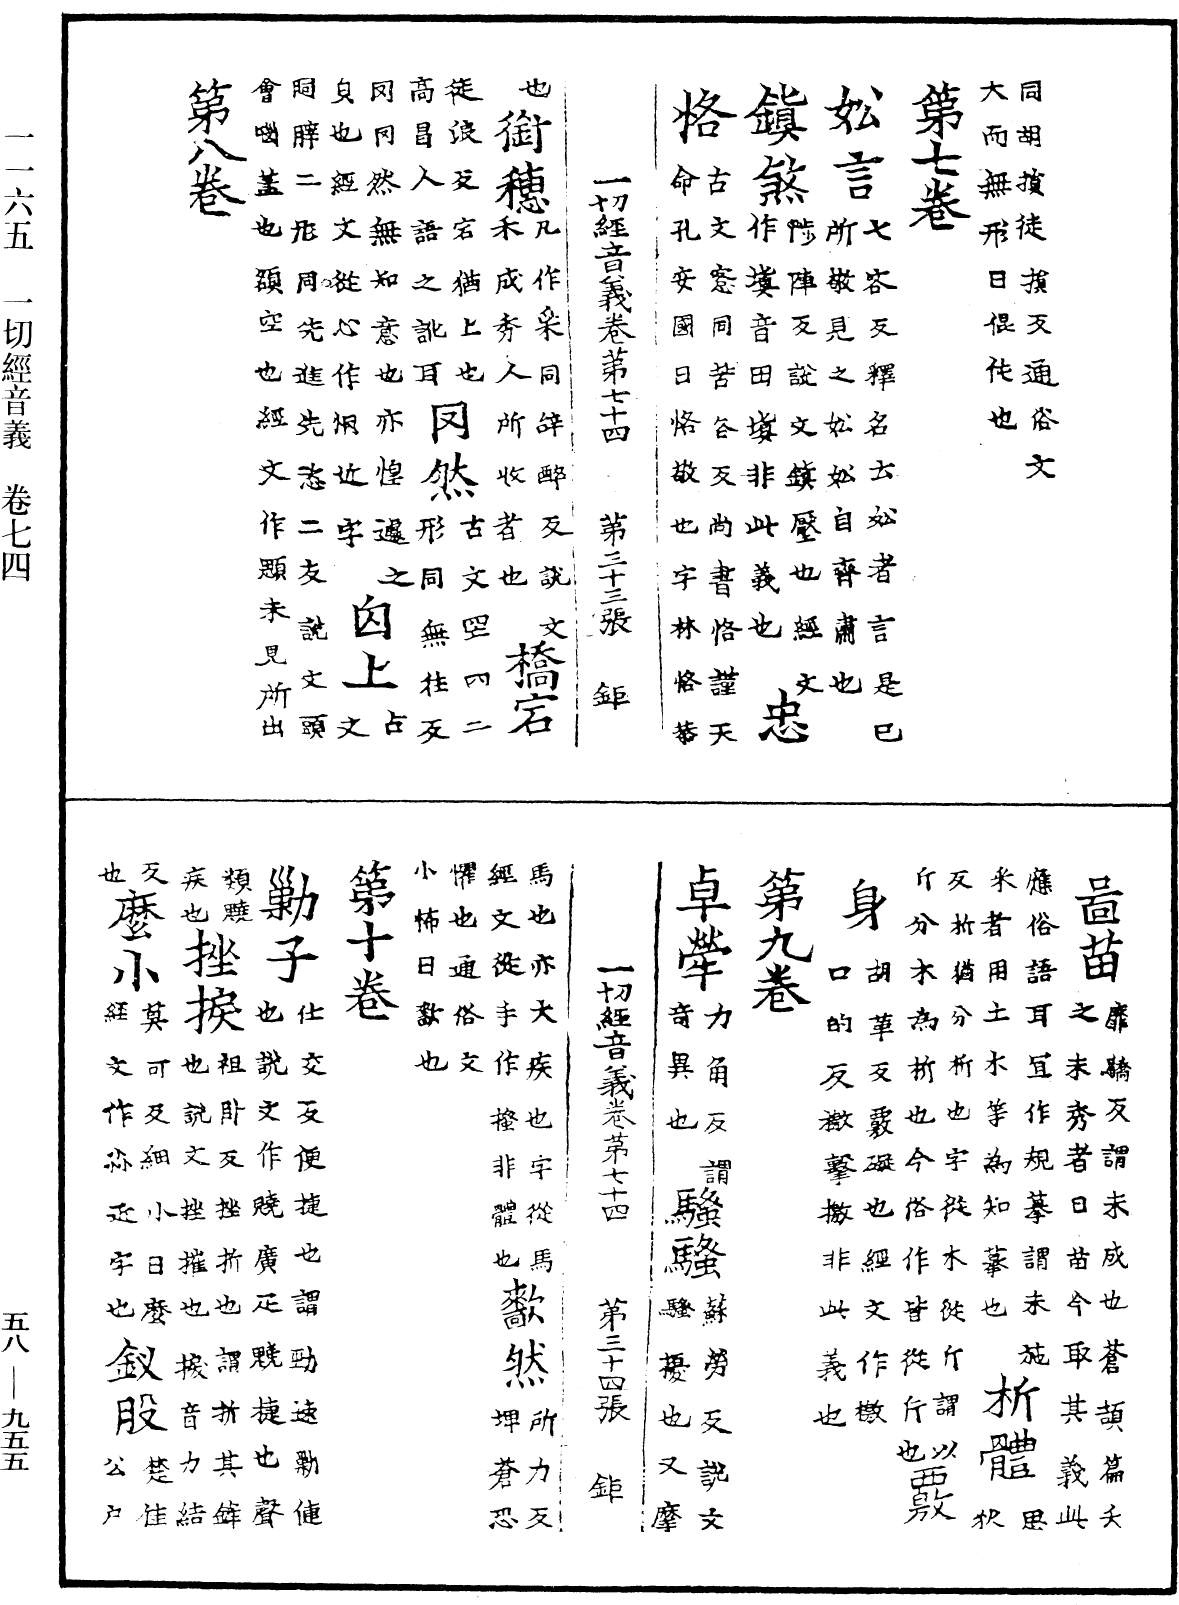 同胡損徒損反通俗文
大而無形曰倱伅也
第七卷
妐言七容反釋名云妐者言是已
所敬見之妐妐自齊肅也
鎮煞陟陣反說文鎮壓也經文
作塡音田塡非此義也
忠恪古文愙同苦各反尚書恪謹天
命孔安國曰恪敬也字林恪恭
一切經音義卷第七十四 第三十三張 鉅
也銜穗凡作采同辞醉反說文
禾成秀人所收者也橋宕
徒浪反宕猶上也
高昌人語之訛耳罔然古文罔四二
形同無往反
罔罔然無知意也亦惶遽之
皃也經文從心作惘近字囟上古文
䐉膟二形同先進先恣二反說文頭
會䐉蓋也頟空也經文作顋未見所出
第八卷
啚苗靡驕反謂未成也蒼頡篇夭
之未秀者曰苗今取其義此
應俗語耳宜作規摹謂未施思
采者用土木等為知摹也析體狄
反析猶分析也字從木從斤謂以
斤分木為析也今俗作皆從斤也覈
身胡革反覈礙也經文作檄
口的反檄擊檄非此義也
第九卷
卓犖力角反謂
奇異也騷騷蘇勞反說文
騷擾也又摩
一切經音義卷第七十四 第三十四張 鉅
馬也亦大疾也字從馬
經文從手作搔非體也歗然所力反
埤蒼恐
懼也通俗文
小怖曰歗也
第十卷
勦子仕交反便捷也謂勁速勦健
也說文作䟢廣疋䟢捷也聲
類䟢
疾也挫捩祖卧反挫折也謂折其鋒
也說文挫摧也捩音力結
反麼小莫可反細小曰麼
也經文作尛近字也釵股楚佳
公戶
一一六五 一切經音義 卷七四
五八—九五五